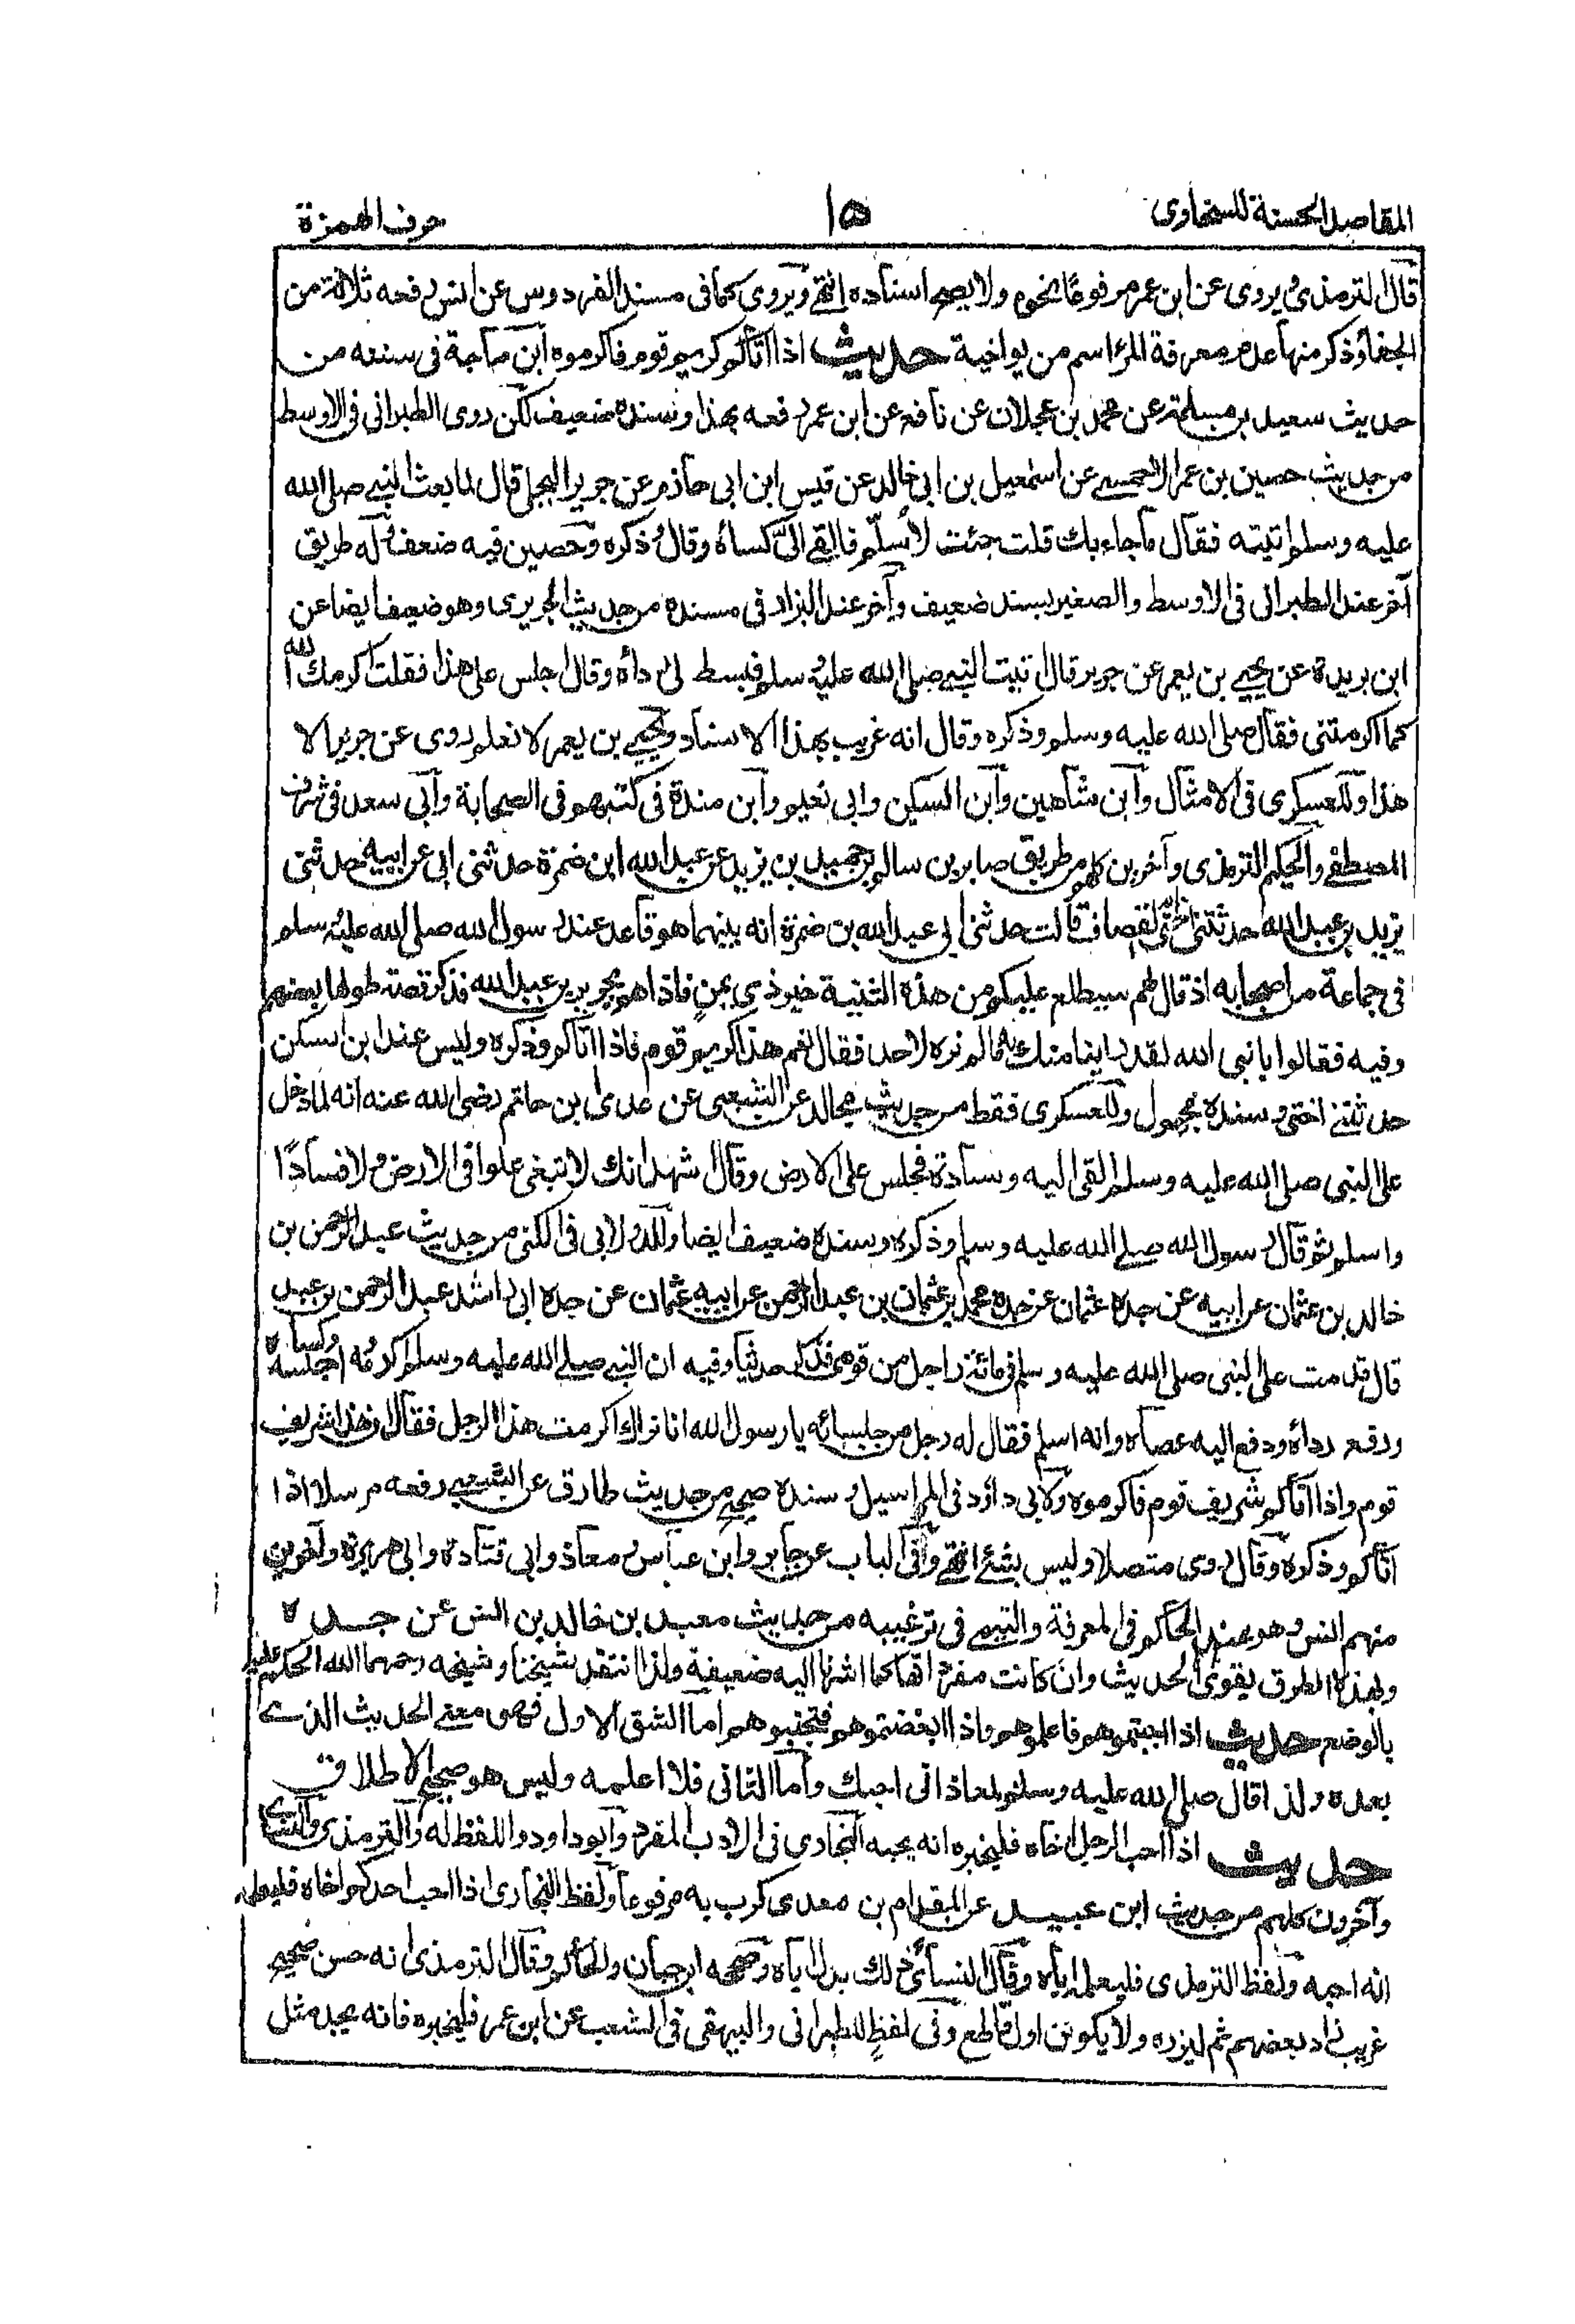 المقاصد الحسنة للسخاوى
١٥
حرف الهمزة
قال الترمذى ويروى عن ابن عمر مرفوعا نحوه ولا يصح اسناده انتهى ويروى كما فى مسند الفردوس عن انس رفعه ثلاثة من
الجفاء وذكر منها عدم معرفة المرء اسم من يواخيه حديث اذا اتاكم كريم قوم فاكرموه ابن ماجة فى سننه من
حديث سعيد بن مسلمة عن محمد بن عجلان عن نافع عن ابن عمر رفعه بهذا وسنده ضعيف لكن روى الطبرانى فى الاوسط
من حديث حصين بن عمر الاحمسى عن اسمعيل بن ابى خالد عن قيس ابن ابى حازم عن جرير البجلى قال لما بعث النبى صلى الله
عليه وسلم اتيته فقال ما جاء بك قلت جئت لأسلم فالقى الىّ كساءه وقال وذكره وحصين فيه ضعف وله طريق
آخر عند الطبرانى فى الاوسط والصغير بسند ضعيف وآخر عند البزار فى مسنده من حديث الجريرى وهو ضعيف ايضا عن
ابن بريدة عن يحيى بن يعمر عن جرير قال اتيت النبى صلى الله عليه وسلم فبسط لى رداءه وقال اجلس على هذا فقلت اكرمك الله
كما اكرمتنى فقال صلى الله عليه وسلم وذكره وقال انه غريب بهذا الاسناد ويحيى بن يعمر لا نعلم روى عن جرير الا
هذا وللعسكرى فى الامثال وابن شاهين وابن السكن وابى نعيم وابن مندة فى كتبهم فى الصحابة وابى سعد فى شرف
المصطفى والحكيم الترمذى وآخرين كلهم من طريق صابر بن سالم بن حميد بن يزيد بن عبد الله ابن ضمرة حدثنى ابى عن ابيه حدثنى
يزيد بن عبد الله حدثتنى اختى ام القصاف قالت حدثنى ابى عبد الله بن ضمرة انه بينهما هو قاعد عند رسول الله صلى الله عليه وسلم
فى جماعة من اصحابه اذ قال لهم سيطلع عليكم من هذه الثنية خير ذى يمن فاذا هو بجرير بن عبد الله فذكر قصة طولها بعضهم
وفيه فقالوا يا نبى الله لقد راينا منك له ما لم نره لاحد فقال نعم هذا كريم قوم فاذا اتاكم وذكره وليس عند ابن السكن
حدثتنى اختى وسنده مجهول وللعسكرى فقط من حديث مجالد عن الشعبى عن عدى بن حاتم رضى الله عنه انه لما دخل
على النبى صلى الله عليه وسلم القى اليه وسادة فجلس على الارض وقال اشهد انك لا تبغى علوا فى الارض ولا فسادًا
واسلم ثم قال رسول الله صلى الله عليه وسلم وذكره وسنده ضعيف ايضا وللدولابى فى الكنى من حديث عبد الرحمن بن
خالد بن عثمان عن ابيه عن جده عثمان عن جده محمد بن عثمان بن عبد الرحمن عن ابيه عثمان عن جده ابى راشد عبد الرحمن بن عبد
قال قدمت على النبى صلى الله عليه وسلم فى مائة راجل من قومى فذكر حديثا وفيه ان النبى صلى الله عليه وسلم اكرمه واجلسه وكساه
ودفع رداءه ودفع اليه عصاه وانه اسلم فقال له رجل من جلسائه يا رسول الله انا نراك اكرمت هذا الرجل فقال ان هذا شريف
قوم واذا اتاكم شريف قوم فاكرموه ولابى داؤد فى المراسيل وسنده صحيح من حديث طارق عن الشعبى رفعه مرسلا اذا
اتاكم وذكره وقال روى متصلا وليس بشئ انتهى وفى الباب عن جابر وابن عباس ومعاذ وابى قتادة وابى هريرة وآخرين
منهم انس وهو عند الحاكم فى المعرفة والتيمى فى ترغيبه من حديث معبد بن خالد بن انس عن جده
وبهذه الطرق يقوى الحديث وان كانت مفرداتها كما اشرنا اليه ضعيفة ولذا انتقد شيخنا وشيخه رحمهما الله الحكم عليه
بالوضع حديث اذا احببتموهم فاعلموهم واذا ابغضتموهم فتجنبوهم اما الشق الاول فهو معنى الحديث الذى
بعده ولذا قال صلى الله عليه وسلم لمعاذ انى احبك وأما الثانى فلا اعلمه وليس هو صحيح الاطلاق
حديث اذا احب الرجل اخاه فليخبره انه يحبه البخارى فى الادب المفرد وابو داود واللفظ له والترمذى والنسائى
وآخرون كلهم من حديث ابن عبيد عن المقدام بن معدى كرب به مرفوعا ولفظ البخارى اذا احب احدكم اخاه فليعلمه
انه احبه ولفظ الترمذى فليعلمه اياه وقال النسائى ذلك بدل اياه وصححه ابن حبان والحاكم وقال الترمذى انه حسن صحيح
غريب زاد بعضهم ثم ليزره ولا يكونن اول قاطع وفى لفظٍ للطبرانى والبيهقى فى الشعب عن ابن عمر فليخبره فانه يجد مثل